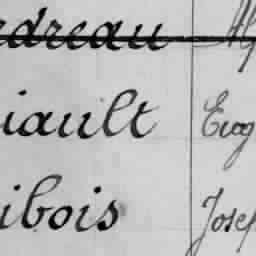 edreau Alf
iault Eug
ibois Josep